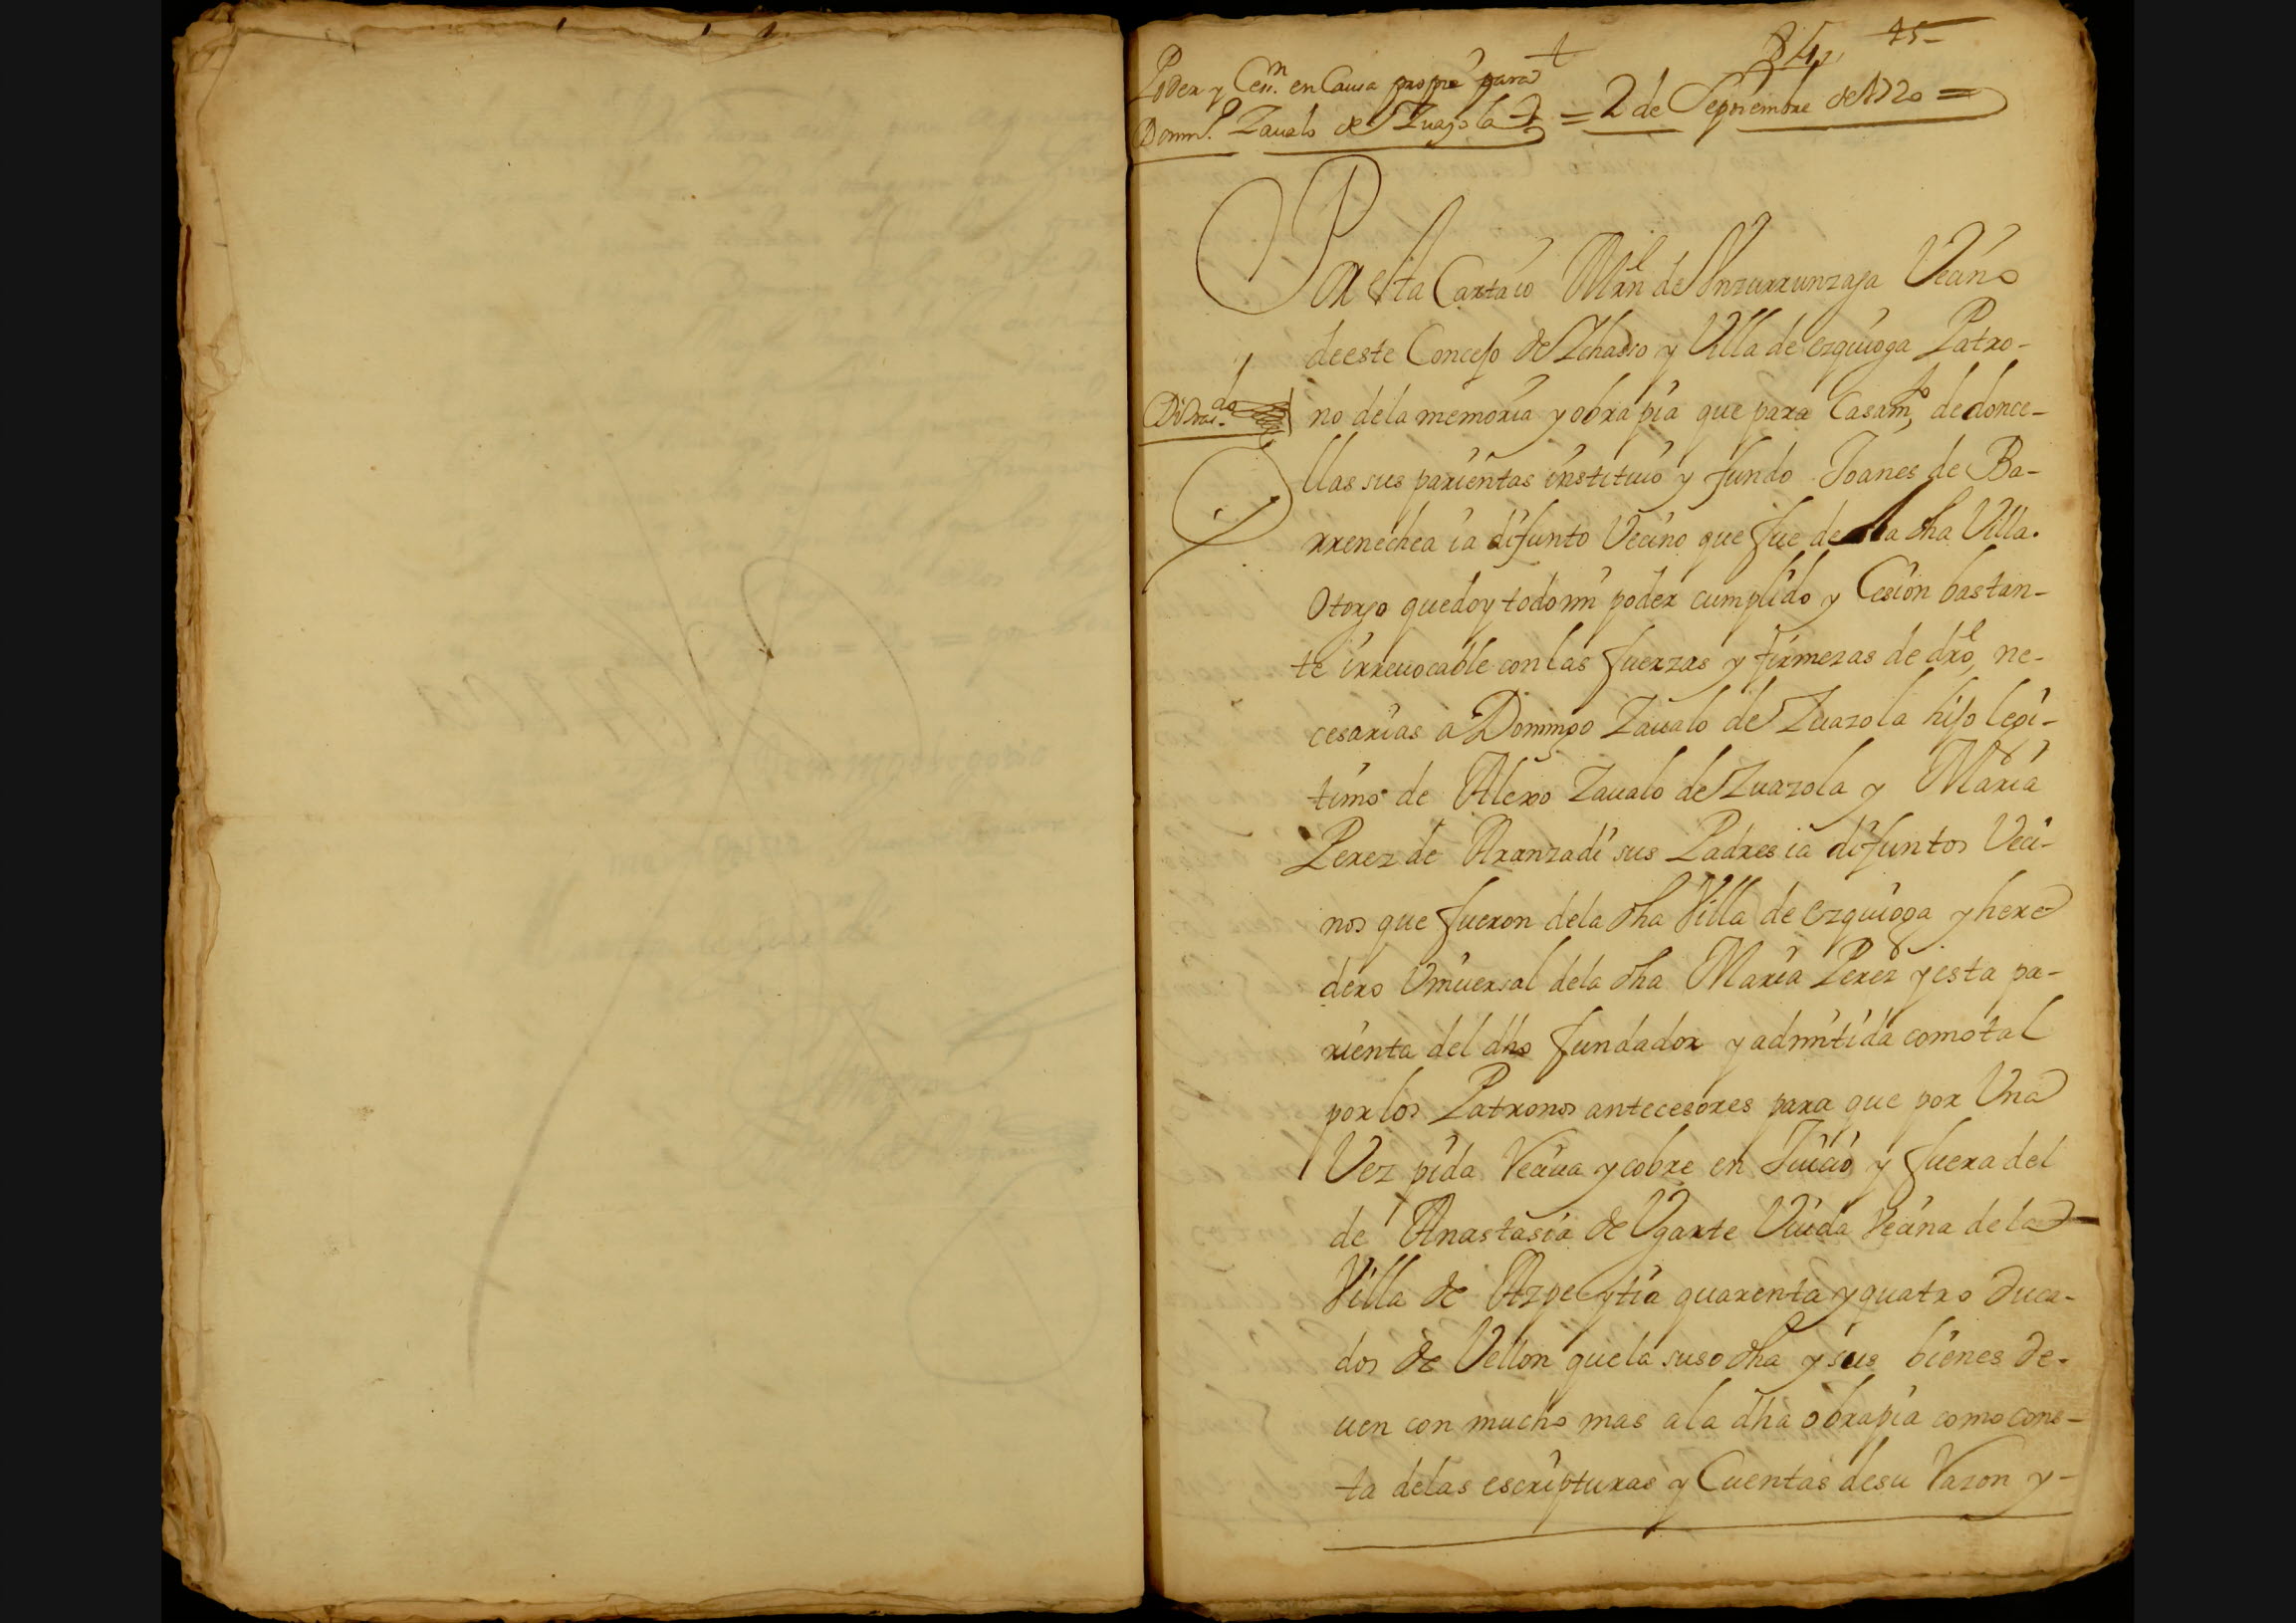 84, 45-
Poder y Cen. en Causa propia para
Domin.º Zaualo de Zuazola = 2 de Septiembre de 1720 =
Por esta Carta io Mrñ de Inzurrunzaga Vecino
de este Concejo de Ichasso y Villa de ezquioga Patro-
no dela memoria y obra pia que para Casamto, de donce-
llas sus parientas instituio y fundo Joanes de Ba-
rrenechea ia difunto Vecino que fue de la dha Villa.
Otorgo que doy todo mi poder cumplido y Cesion bastan-
te irreuocable con las fuerzas y firmezas de dro, ne-
cesarias a Domingo Zaualo de Zuazola hijo legi-
timo de Alexo Zaualo de Zuazola y Maria
Perez de Aranzadi sus Padres ia difuntos Veci-
nos que fueron dela dha Villa de ezquioga y here
dero Vniuersal dela dha Maria Perez y esta pa-
rienta del dho fundador y admitida como tal
por los Patronos antecesores para que por Una
Vez pida Reciua y cobre en Juicio y fuera del
de Anastasia de Vgarte Viuda Vecina de la
Villa de Azpeytia quarenta y quatro Duca-
dos de Vellon que la suso dha y sus bienes de-
uen con mucho mas a la dha obra pia como cons-
ta delas escripturas y Cuentas de su Razon y-